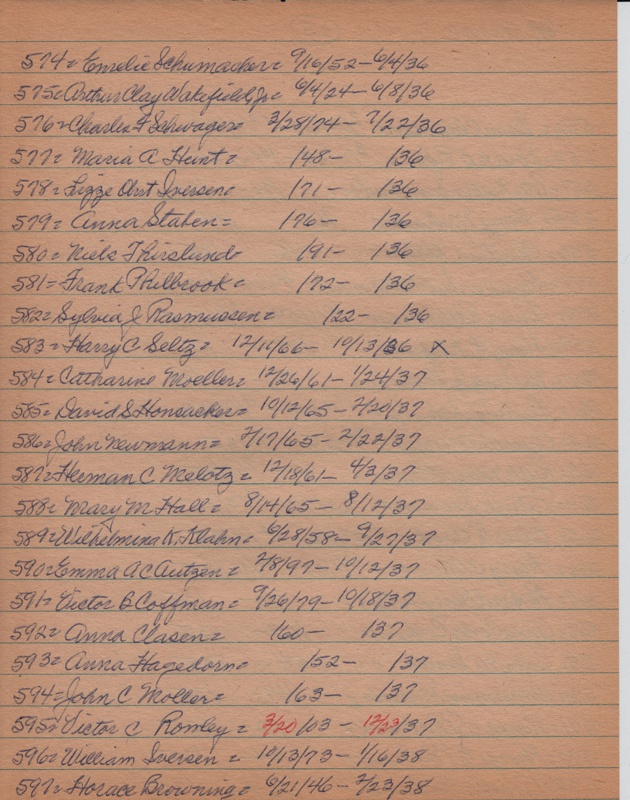 574= Emelie Schumacker= 9/16/52-6/4/36
575= Arthur Clay Wakefield, Jr= 6/4/24-6/8/36
576= Charles F Schwager= 3/28/74-7/22/36
577= Maria A Hunt= /48- /36
578= Lizze Obst Iversen= /71- /36
579= Anna Staben= /76- /36
580= Niels Thirslund= /91- /36
581= Frank Philbrook= /72- /36
582= Sylvia J Rasmussen= /22- /36
583= Harry C Seltz= 12/11/66- 10/13/36 X
584= Catharine Moeller= 12/26/61-1/24/37
585= David S Honsacker= 10/12/65-2/20/37
586= John Newmann= 7/17/65-2/22/37
587= Herman C Melotz= 12/18/61-4/3/37
588= Mary M Hall= 8/14/65-8/12/37
589= Wilhelmina K. Klahn= 6/28/58-9/27/37
590= Emma A C Autzen= 7/8/97-10/12/37
591= Victor B Coffman= 9/26/79-10/18/37
592= Anna Clasen= /60- /37
593= Anna Hagedorn= /52- /37
594= John C Moller= /63- /37
595= Victor C Romley= 3/20/03-12/23/37
596= William Iversen= 10/13/73-1/16/38
597= Horace Browning= 6/21/46-2/23/38